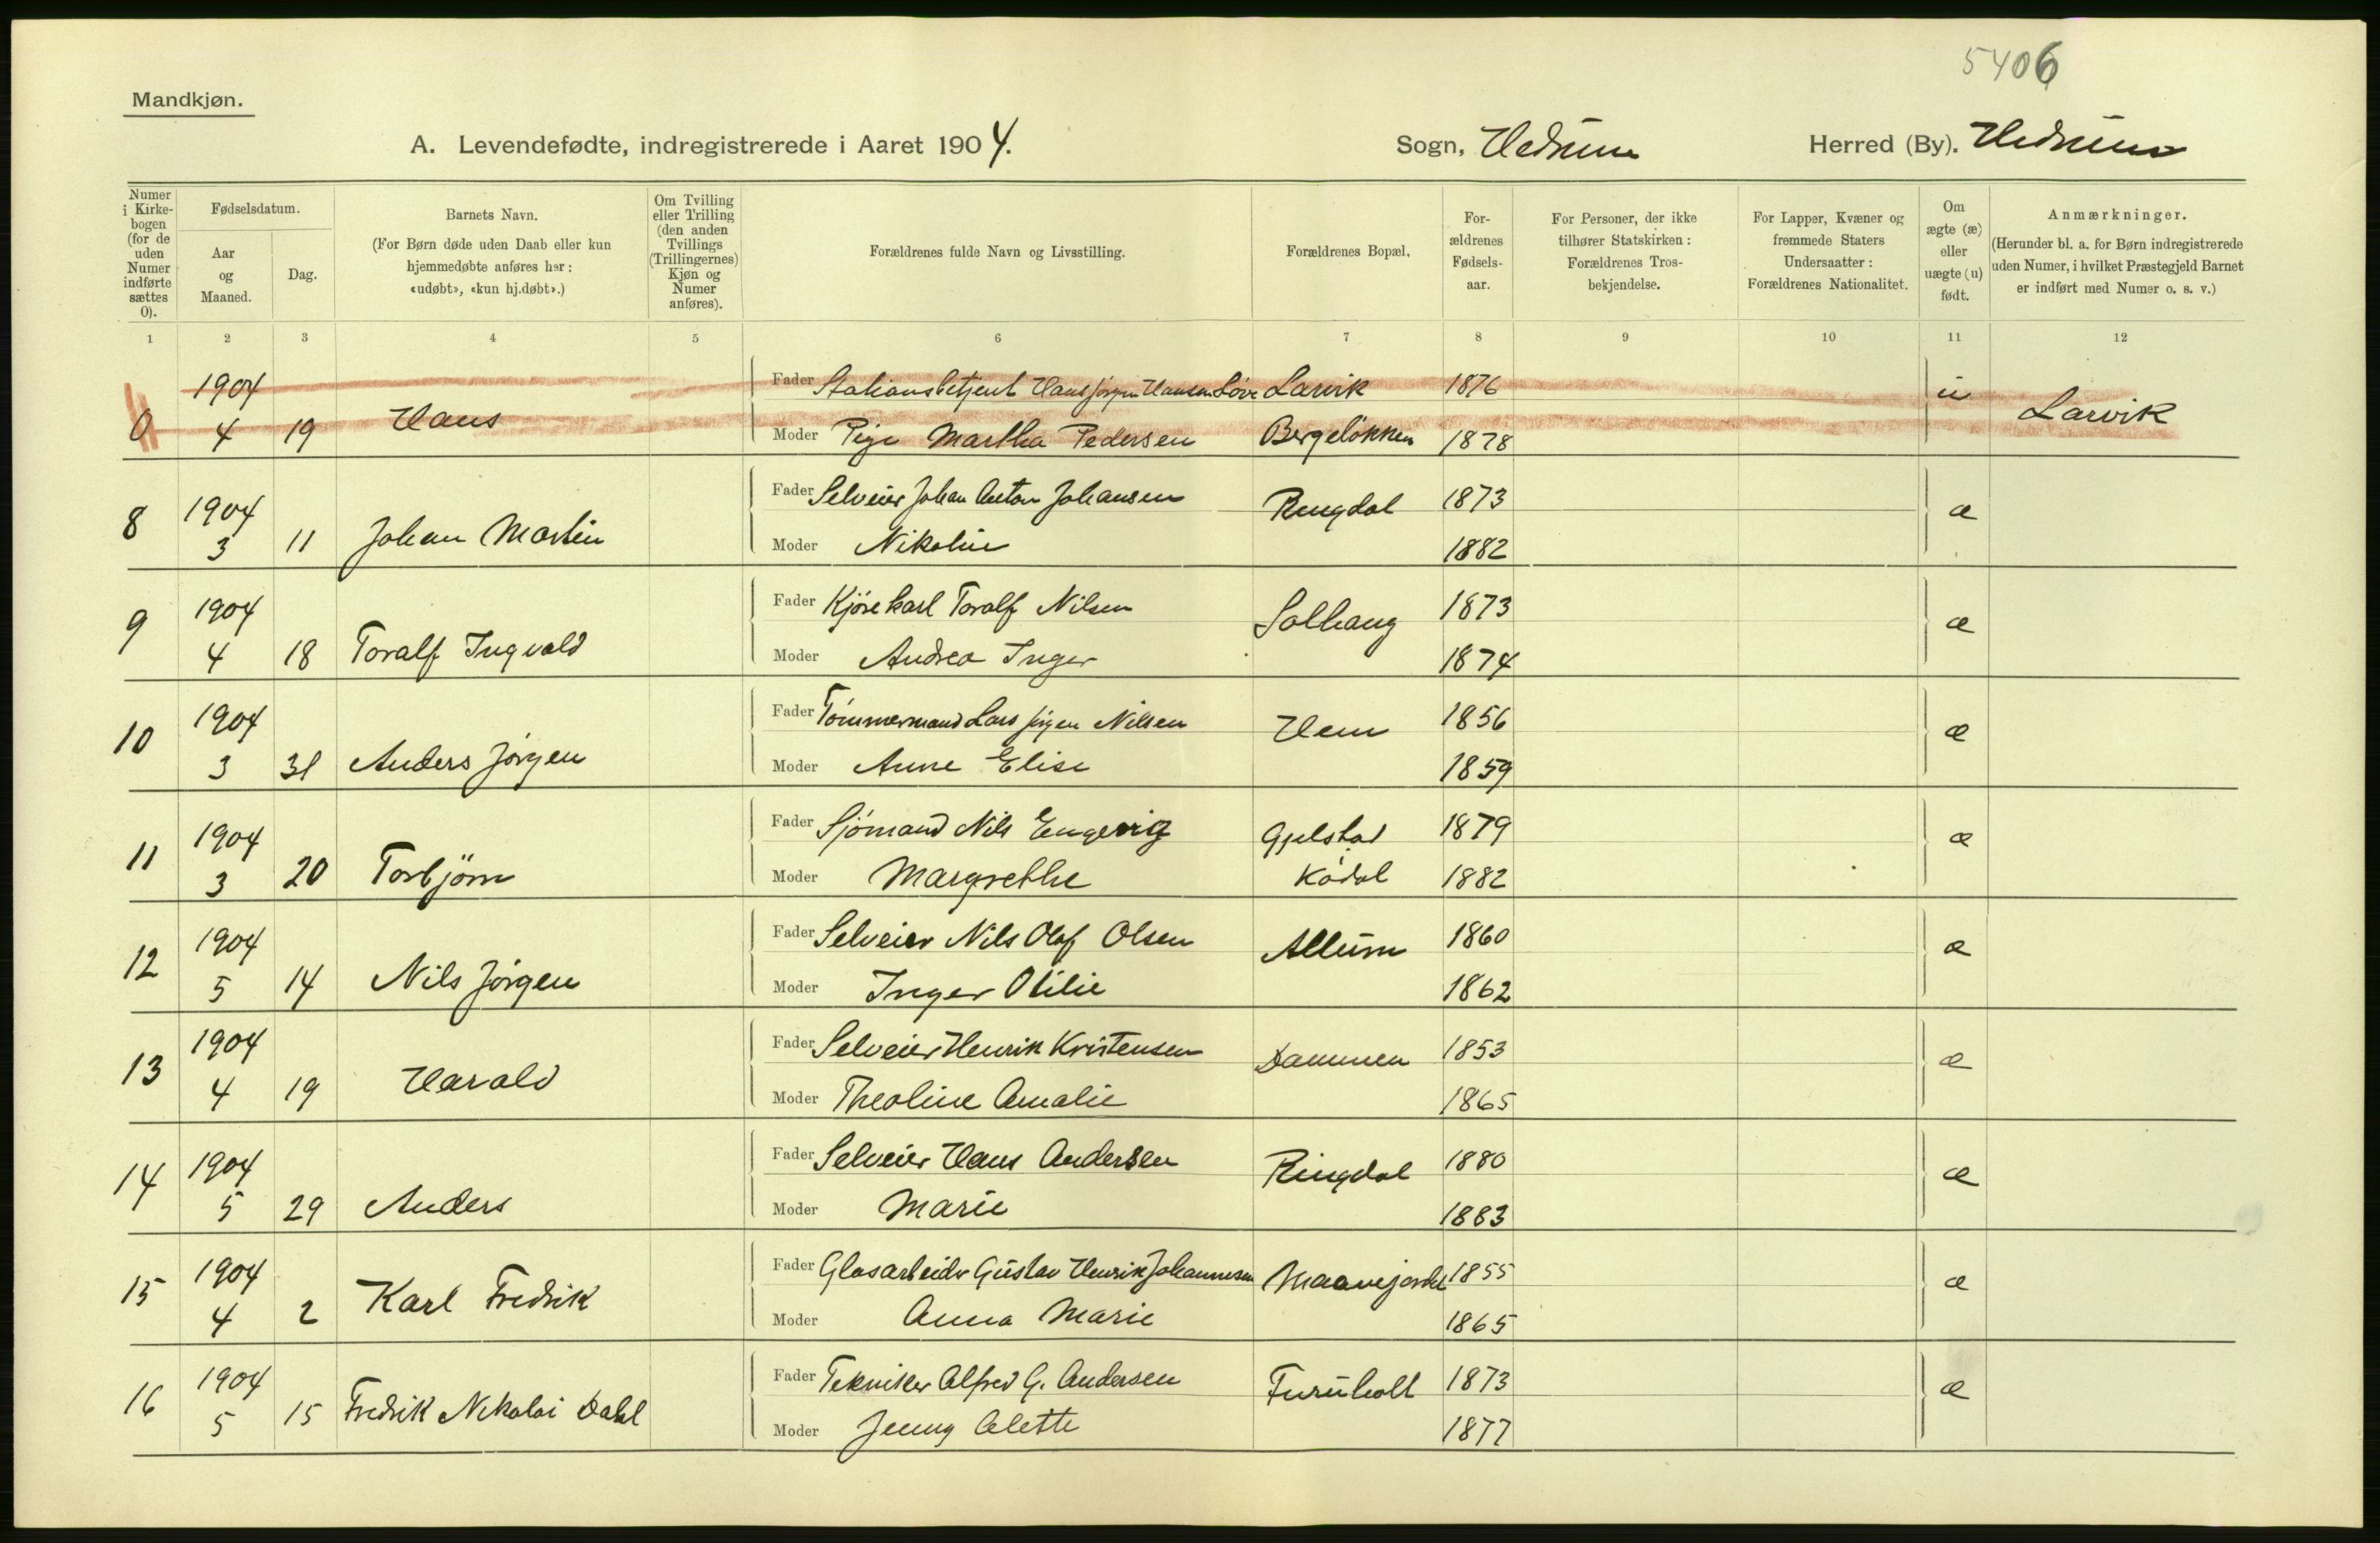 5406
Mandkjøn.
A. Levendefødte, indregistrerede i Aaret 1904.
Sogn, Hedrum
Herred (By). Hedrum
Numer i Kirkebogen (for de uden Numer indførte sættes 0).
Fødselsdatum.
Aar og Maaned.
Dag.
Barnets Navn.
(For Børn døde uden Daab eller kun hjemmedøbte anføres her: «udøbt», «kun hj.døbt».)
Om Tvilling eller Trilling (den anden Tvillings (Trillingernes) Kjøn og Numer anføres).
Forældrenes fulde Navn og Livsstilling.
Forældrenes Bopæl,
Forældrenes Fødselsaar.
For Personer, der ikke tilhører Statskirken: Forældrenes Trosbekjendelse.
For Lapper, Kvæner og fremmede Staters Undersaatter: Forældrenes Nationalitet.
Om ægte (æ) eller uægte (u) født.
Anmærkninger.
(Herunder bl. a. for Børn indregistrerede uden Numer, i hvilket Præstegjeld Barnet er indført med Numer o. s. v.)
1 2 3 4 5 6 7 8 9 10 11 12
1904 Fader Stationsbetjent Hans Jørgen Hansen Løve Larvik 1876 u
0 4 19 Hans Moder Pige Martha Pedersen Bergeløkken 1878 Larvik
8 1904 Fader Selveier Johan Anton Johansen Ringdal 1873 æ
3 11 Johan Martin Moder Nikoline 1882
9 1904 Fader Kjørekarl Toralf Nilsen Solhaug 1873 æ
4 18 Toralf Ingvald Moder Andrea Inger 1874
10 1904 Fader Tømmermand Lars Jørgen Nilsen Hem 1856 æ
3 31 Anders Jørgen Moder Anne Elise 1859
11 1904 Fader Sjømand Nils Engevig Gjelstad 1879 æ
3 20 Torbjørn Moder Margrethe Kodal 1882
12 1904 Fader Selveier Nils Olaf Olsen Allum 1860 æ
5 14 Nils Jørgen Moder Inger Otilie 1862
13 1904 Fader Selveier Henrik Kristensen Dammen 1853 æ
4 19 Harald Moder Theoline Amalie 1865
14 1904 Fader Selveier Hans Andersen Ringdal 1880 æ
5 29 Anders Moder Marie 1883
15 1904 Fader Glasarbeider Gustav Henrik Johannesen 1855 æ
4 2 Karl Fredrik Moder Anna Marie 1865
16 1904 Fader Tekniker Alfred G. Andersen Furuholt 1873 æ
5 15 Fredrik Nikolai Dahl Moder Jenny Alette 1877